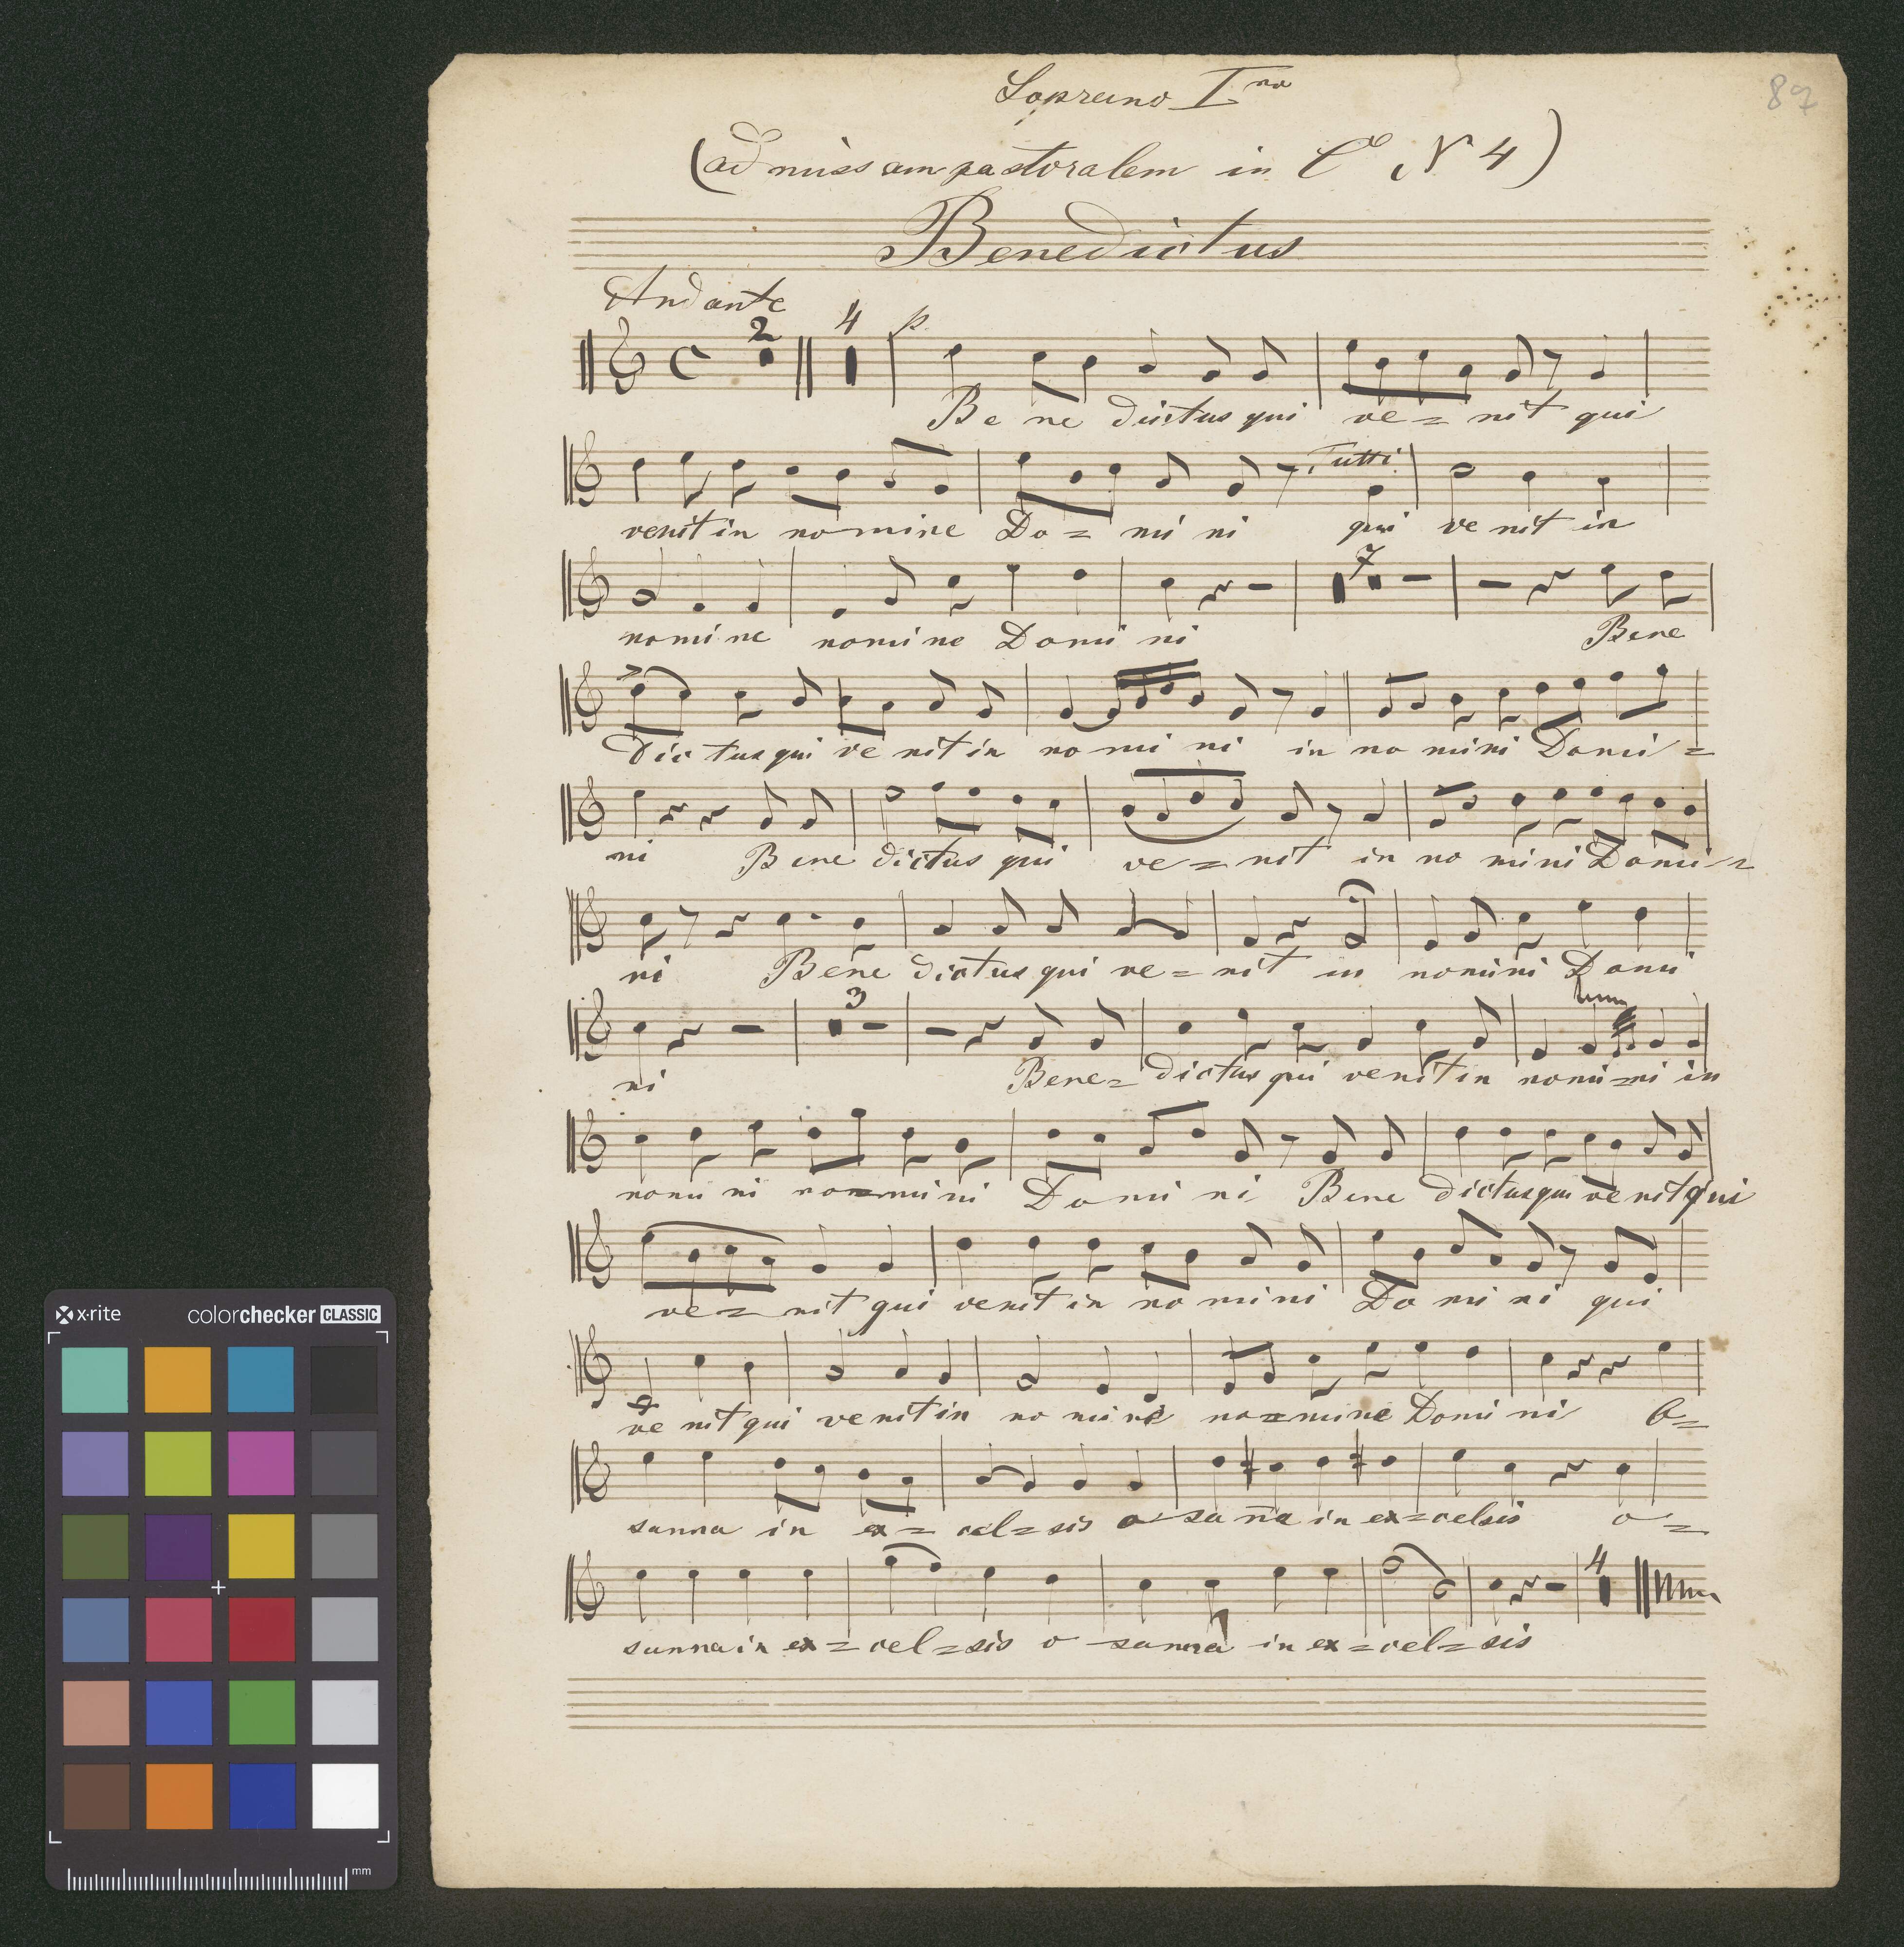 Soprano I^mo
89
(ad missam pastoralem in C N 4)
Benedictus
Andante
2 4 p
Be ne dictus qui ve = nit qui
Tutti
venit in nomine Do = mi ni qui ve nit in
7
nomi ne nomi ne Domi ni Bene
dic tus qui ve nit in no mi ni in no mini Domi =
ni Bene dictus qui ve = nit in no mini Domi =
ni Bene dictus qui ve = nit in nomini Domi
3
ni Bene = dictus qui venit in nomi = ni in
nomi ni no = mini Domi ni Bene dictus qui ve nit qui
ve = nit qui venit in no mini Do mi ni qui
ve nit qui venit in no mine no = mine Domi ni O =
sanna in ex = cel = sis o sana in ex = celsis o =
4
sanna in ex = cel = sis o sanna in ex = cel = sis
x-rite colorchecker CLASSIC
mm